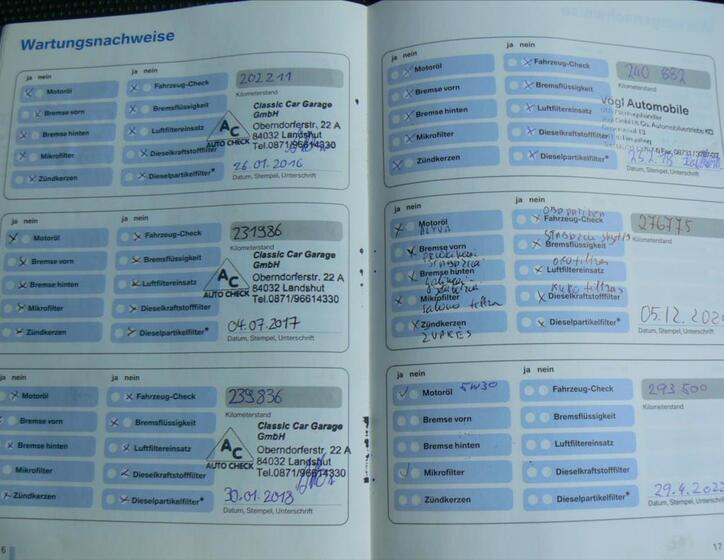 Wartungsnachweise
ja nein
Motoröl
Bremse vorn
Bremse hinten
Mikrofilter
Zündkerzen
ja nein
Fahrzeug-Check
Bremsflüssigkeit
Luftfiltereinsatz
Dieselkraftstofffilter
Dieselpartikelfilter*
202211
Kilometerstand
Classic Car Garage
GmbH
Oberndorferstr. 22 A
84032 Landshut
Tel.0871/96614330
AC
AUTO CHECK
26.01.2016
Datum, Stempel, Unterschrift
ja nein
Motoröl
Bremse vorn
Bremse hinten
Mikrofilter
Zündkerzen
ja nein
Fahrzeug-Check
Bremsflüssigkeit
Luftfiltereinsatz
Dieselkraftstofffilter
Dieselpartikelfilter*
231986
Kilometerstand
Classic Car Garage
GmbH
Oberndorferstr. 22 A
84032 Landshut
Tel.0871/96614330
AC
AUTO CHECK
04.07.2017
Datum, Stempel, Unterschrift
ja nein
Motoröl
Bremse vorn
Bremse hinten
Mikrofilter
Zündkerzen
ja nein
Fahrzeug-Check
Bremsflüssigkeit
Luftfiltereinsatz
Dieselkraftstofffilter
Dieselpartikelfilter*
239836
Kilometerstand
Classic Car Garage
GmbH
Oberndorferstr. 22 A
84032 Landshut
Tel.0871/96614330
AC
AUTO CHECK
30.01.2018
Datum, Stempel, Unterschrift
6
ja nein
Motoröl
Bremse vorn
Bremse hinten
Mikrofilter
Zündkerzen
ja nein
Fahrzeug-Check
Bremsflüssigkeit
Luftfiltereinsatz
Dieselkraftstofffilter
Dieselpartikelfilter*
240 882
Kilometerstand
Vogl Automobile
Datum, Stempel, Unterschrift
ja nein
Motoröl
Bremse vorn
Bremse hinten
Mikrofilter
salono filtra
Zündkerzen
ZVAKES
ja nein
Fahrzeug-Check
Bremsflüssigkeit
Luftfiltereinsatz
Kuro filtras
Dieselkraftstofffilter
Dieselpartikelfilter*
276775
Kilometerstand
05.12.202
Datum, Stempel, Unterschrift
ja nein
Motoröl 5W30
Bremse vorn
Bremse hinten
Mikrofilter
Zündkerzen
ja nein
Fahrzeug-Check
Bremsflüssigkeit
Luftfiltereinsatz
Dieselkraftstofffilter
Dieselpartikelfilter*
293 500
Kilometerstand
29.4.2022
Datum, Stempel, Unterschrift
17